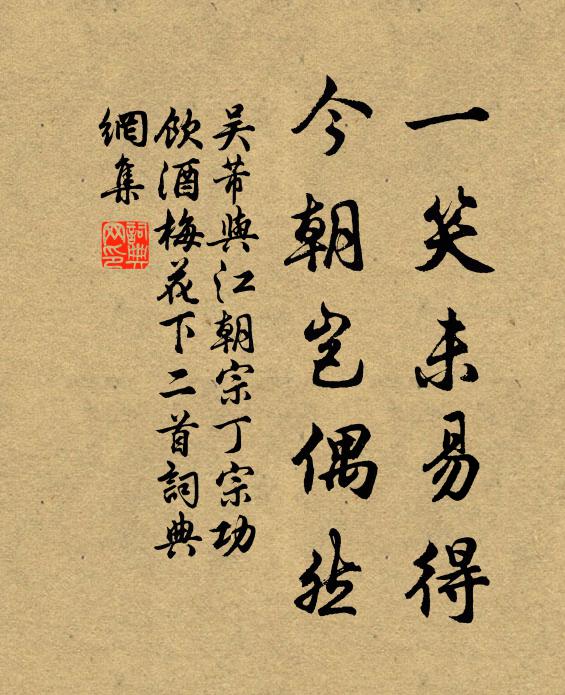 一笑未易得
今朝岂偶然
吴芾與江朝宗丁宗功
飲酒梅花下二首詞典
網集
詞典
网印